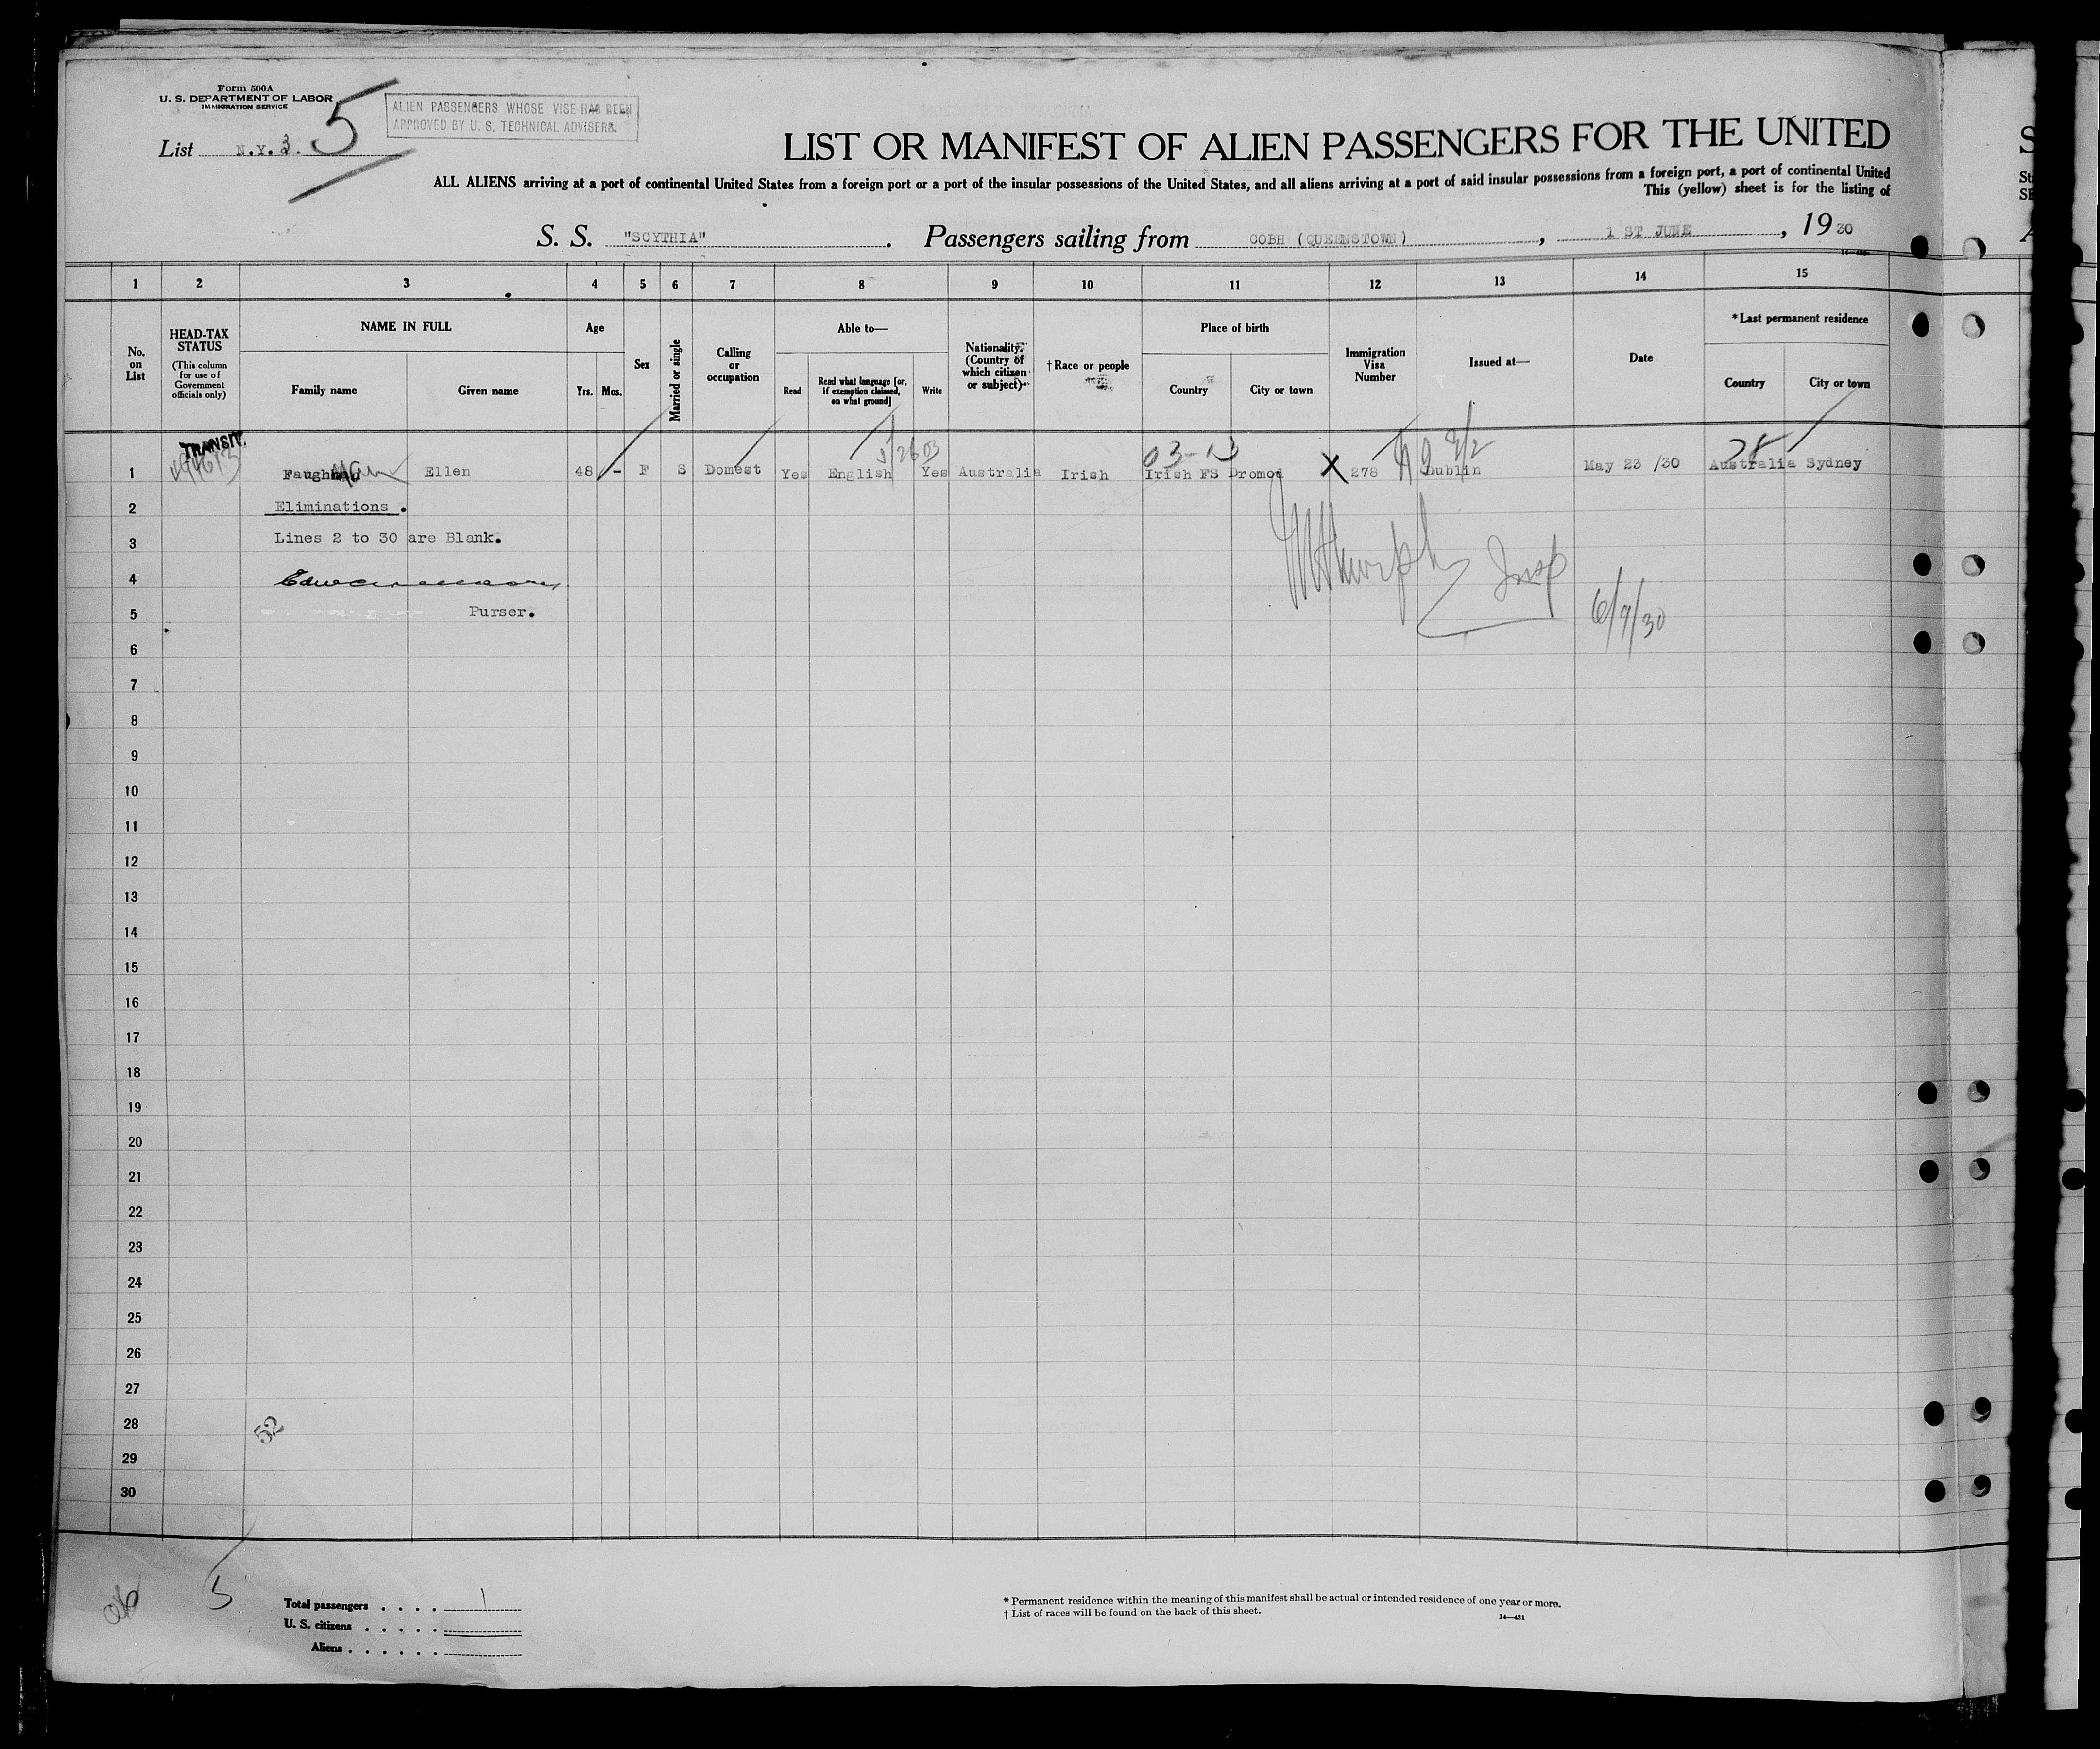 Form 500A
U. S. DEPARTMENT OF LABOR
IMMIGRATION SERVICE
ALIEN PASSENGERS WHOSE VISE HAS BEEN
APPROVED BY U. S. TECHNICAL ADVISERS.
List N.Y.3. 5
LIST OR MANIFEST OF ALIEN PASSENGERS FOR THE UNITED
ALL ALIENS arriving at a port of continental United States from a foreign port or a port of the insular possessions of the United States, and all aliens arriving at a port of said insular possessions from a foreign port, a port of continental United
This (yellow) sheet is for the listing of
S. S. "SCYTHIA". Passengers sailing from COBH (QUEENSTOWN), 1 ST JUNE, 1930
1 2 3 4 5 6 7 8 9 10 11 12 13 14 15
No. on List
HEAD-TAX STATUS
(This column for use of Government officials only)
NAME IN FULL
Family name
Given name
Age
Yrs. Mos.
Sex
Married or single
Calling or occupation
Able to—
Read
Read what language [or, if exemption claimed, on what ground]
Write
Nationality. (Country of which citizen or subject)
† Race or people
Place of birth
Country
City or town
Immigration Visa Number
Issued at—
Date
*Last permanent residence
Country
City or town
TRANSIT.
5/2603 03-13 28
1 Ellen 48 - F S Domest Yes English Yes Australia Irish Irish FS Dromod X 278 Dublin May 23 /30 Australia Sydney
2 Eliminations.
3 Lines 2 to 30 are Blank.
4 Insp
5 Purser. 6/9/30
6
7
8
9
10
11
12
13
14
15
16
17
18
19
20
21
22
23
24
25
26
27
28 52
29
30
5
Total passengers . . . . 1
U. S. citizens . . . . .
Aliens . . . . . .
* Permanent residence within the meaning of this manifest shall be actual or intended residence of one year or more.
† List of races will be found on the back of this sheet.
14—481